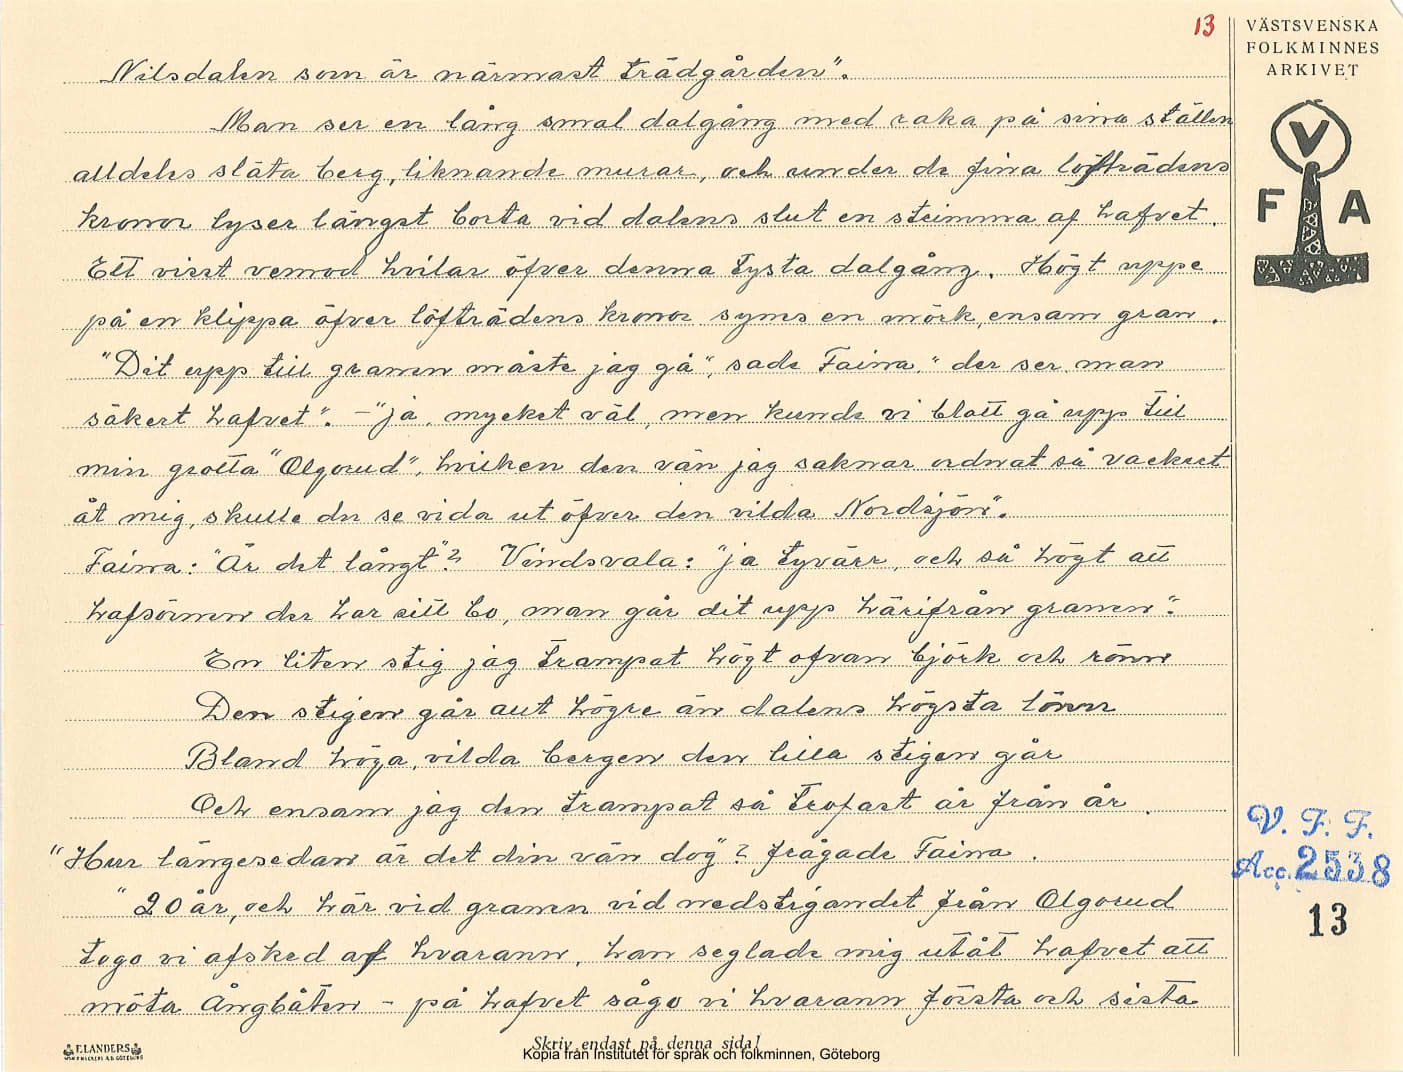 13
VÄSTSVENSKA
FOLKMINNES
ARKIVET
V
F A
Nilsdalen som är närmast trädgården".
Man ser en lång smal dalgång med raka på sina ställen
alldeles släta berg, liknande murar, och under de fina löfträdens
kronor lyser längst borta vid dalens slut en strimma af hafvet.
Ett visst vemod hvilar öfver denna tysta dalgång. Högt uppe
på en klippa öfver löfträdens kronor syns en mörk, ensam gran.
"Dit upp till granen måste jag gå", sade Faina, "der ser man
säkert hafvet". - "ja, mycket väl, men kunde vi blott gå upp till
min grotta "Olgorud", hvilken den vän jag saknar ordnat så vackert
åt mig, skulle du se vida ut öfver den vilda Nordsjön".
Faina: "Är det långt"? Vindsvala: "ja tyvärr, och så högt att
hafsörnen der har sitt bo, man går dit upp härifrån granen".
En liten stig jag trampat högt ofvan björk och rönn
Den stigen går allt högre än dalens högsta lönn
Bland höga, vilda bergen den lilla stigen går
Och ensam jag den trampat så trofast år från år.
"Hur längesedan är det din vän dog"? frågade Faina.
"20 år, och här vid granen vid nedstigandet från Olgorud
togo vi afsked af hvarann, han seglade mig utåt hafvet att
möta Ångbåten - på hafvet sågo vi hvarann första och sista
V. F. F.
Acc. 2538
13
F. LANDERS
Skriv endast på denna sida!
Kopia från Institutet för språk och folkminnen, Göteborg